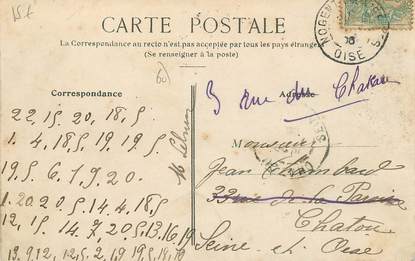 15 f
CARTE POSTALE
La Correspondance au recto n'est pas acceptée par tous les pays étrangers
(Se renseigner à la poste)
NOGENT
OISE
Correspondance
Adresse
3 rue du
22, 15. 20, 18. 5
1. 4, 18. 5, 19. 19. 5
19. 5. 6. 1, 9. 20.
1. 20. 20. 5. 14. 4. 18, 5
12, 15. 14. 7, 20. 5. 13. 16. 19
13. 9. 12, 12. 5. 2. 19
Monsieur
Jean Chambaud
33 rue de la Paroisse
Chatou
Seine et Oise